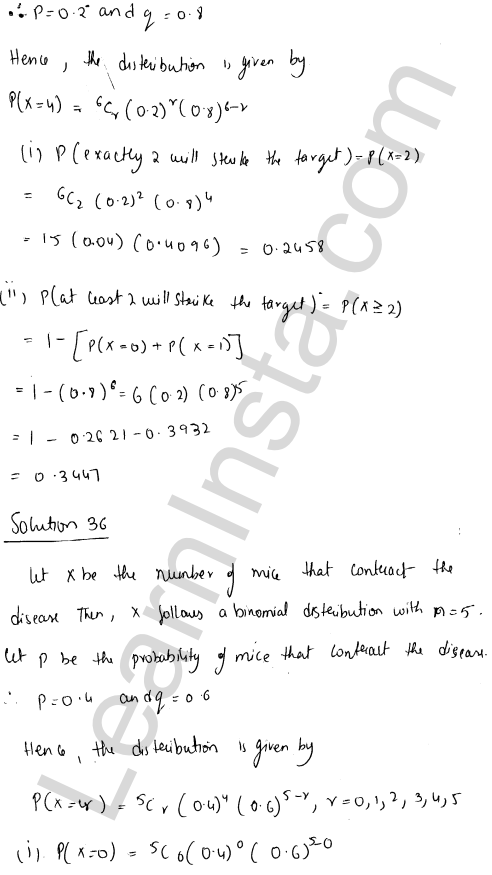 ∴ P=0.2 and q=0.8
Hence, the distribution is given by
P(x=4) = ⁶Cᵣ (0.2)ʳ (0.8)⁶⁻ʳ
(i) P(exactly 2 will strike the target) = P(x=2)
= 6C₂ (0.2)² (0.8)⁴
= 15 (0.04) (0.4096) = 0.2458
(ii) P(at least 2 will strike the target) = P(x≥2)
= 1-[P(x=0) + P(x=1)]
= 1-(0.8)⁶ = 6(0.2)(0.8)⁵
= 1 - 0.2621-0.3932
= 0.3447
Solution 36
Let x be the number of mice that contract the
disease Then, x follows a binomial distribution with n=5.
Let p be the probability of mice that contract the disease.
∴ P=0.4 and q=0.6
Hence, the distribution is given by
P(x=r) = ⁵Cᵣ (0.4)⁴ (0.6)⁵⁻ʳ, r=0,1,2,3,4,5
(i) P(x=0) = ⁵C₀(0.4)⁰ (0.6)⁵⁻⁰
LearnInsta.com